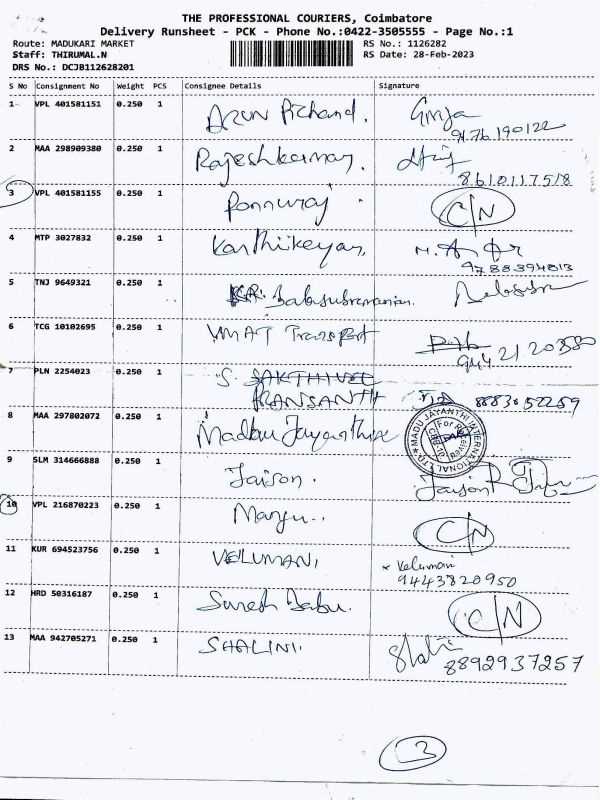 THE PROFESSIONAL COURIERS, Coimbatore
Delivery Runsheet - PCK - Phone No.:0422-3505555 - Page No.:1
Route: MADUKARI MARKET RS No.: 1126282
Staff: THIRUMAL.N RS Date: 28-Feb-2023
DRS No.: DCJB112628201
S No Consignment No Weight PCS Consignee Details Signature
1 VPL 401581151 0.250 1 Arun Pichand. Girija
9176190122
2 MAA 298909380 0.250 1 Rajeshkumar.
8610117518
3 VPL 401581155 0.250 1 Ponnuraj C/N
4 MTP 3027832 0.250 1 Karthikeyan,
9788394013
5 TNJ 9649321 0.250 1 Balasubramanian.
6 TCG 10102695 0.250 1 VMAT Transport
9442120380
7 PLN 2254023 0.250 1 S. SAKTHIVEL
PRANSANTH 8883052259
8 MAA 297802072 0.250 1 Madhu Jayanthi MADU JAYANTHI INTERNATIONAL
9 SLM 314666888 0.250 1 Jaison. Jaison
10 VPL 216870223 0.250 1 Manju.. C/N
11 KUR 694523756 0.250 1 VELUMANI, * Velumani
9443820950
12 HRD 50316187 0.250 1 Suresh Babu. C/N
13 MAA 942705271 0.250 1 SHALINI.
8892937257
3